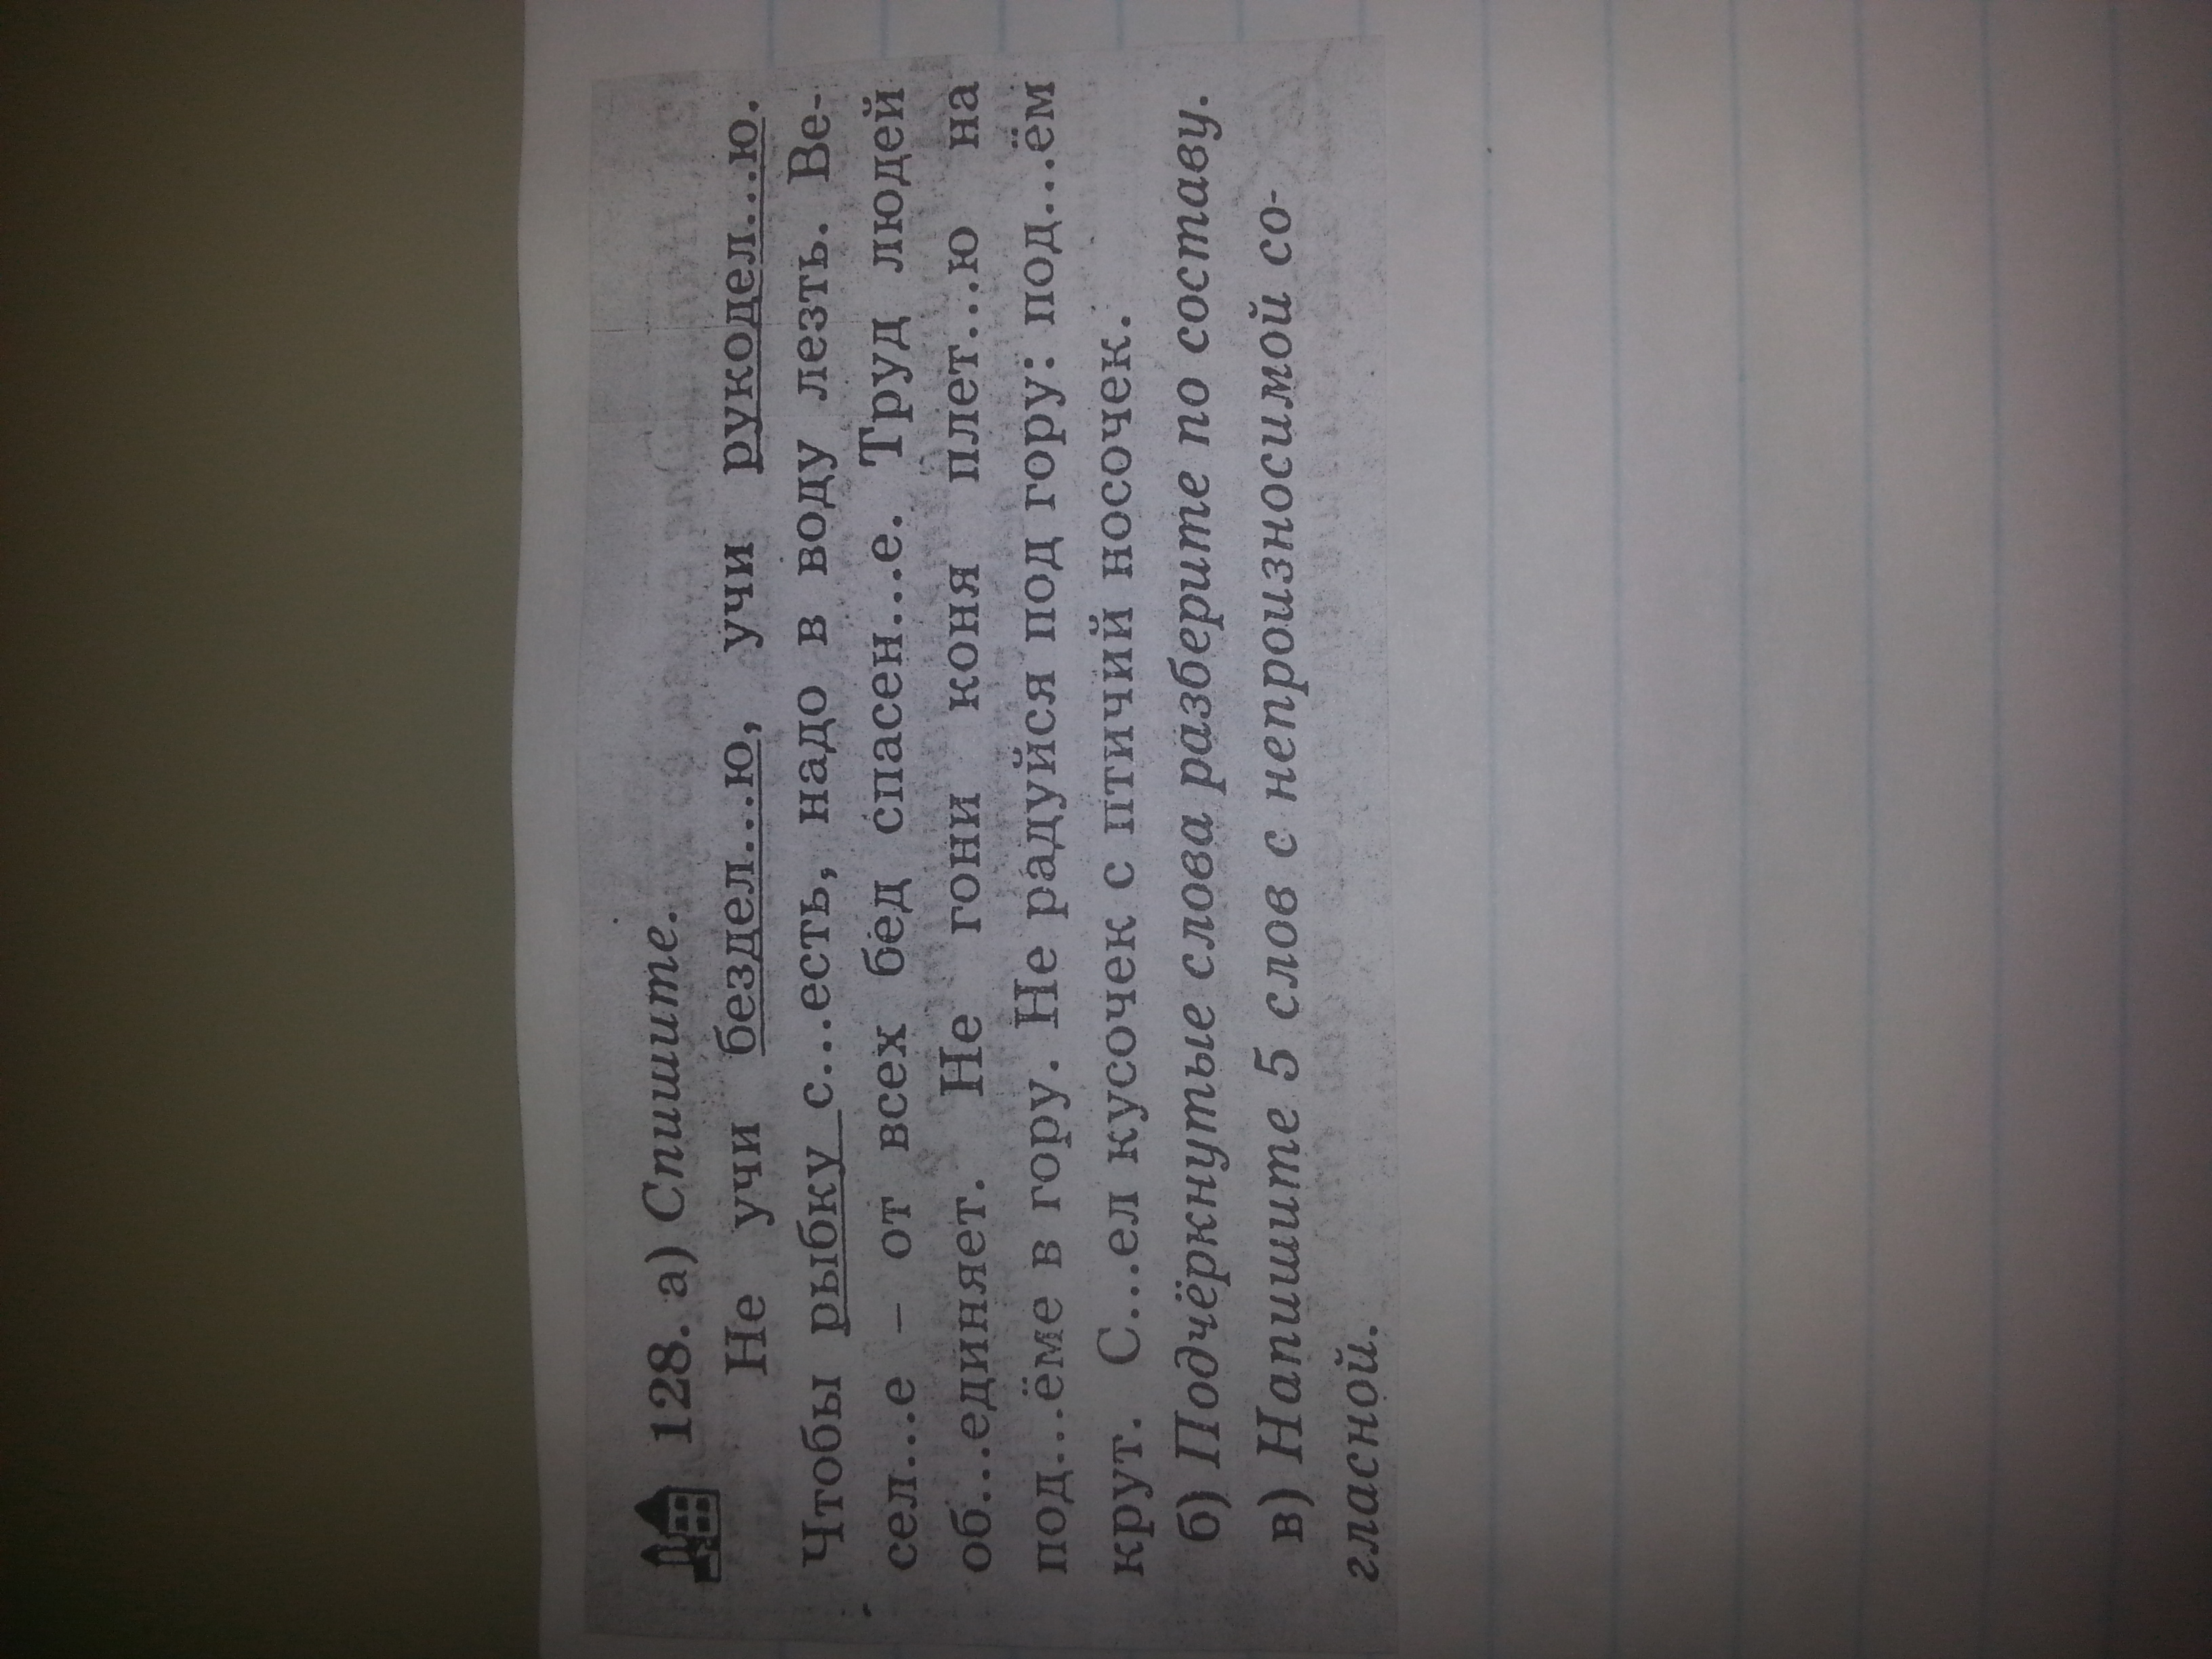 128. а) Спишите.
Не учи бездел...ю, учи рукодел...ю.
Чтобы рыбку с...есть, надо в воду лезть. Ве-
сел...е – от всех бед спасен...е. Труд людей
об...единяет. Не гони коня плет...ю на
под...ёме в гору. Не радуйся под гору: под...ём
крут. С...ел кусочек с птичий носочек.
б) Подчёркнутые слова разберите по составу.
в) Напишите 5 слов с непроизносимой со-
гласной.